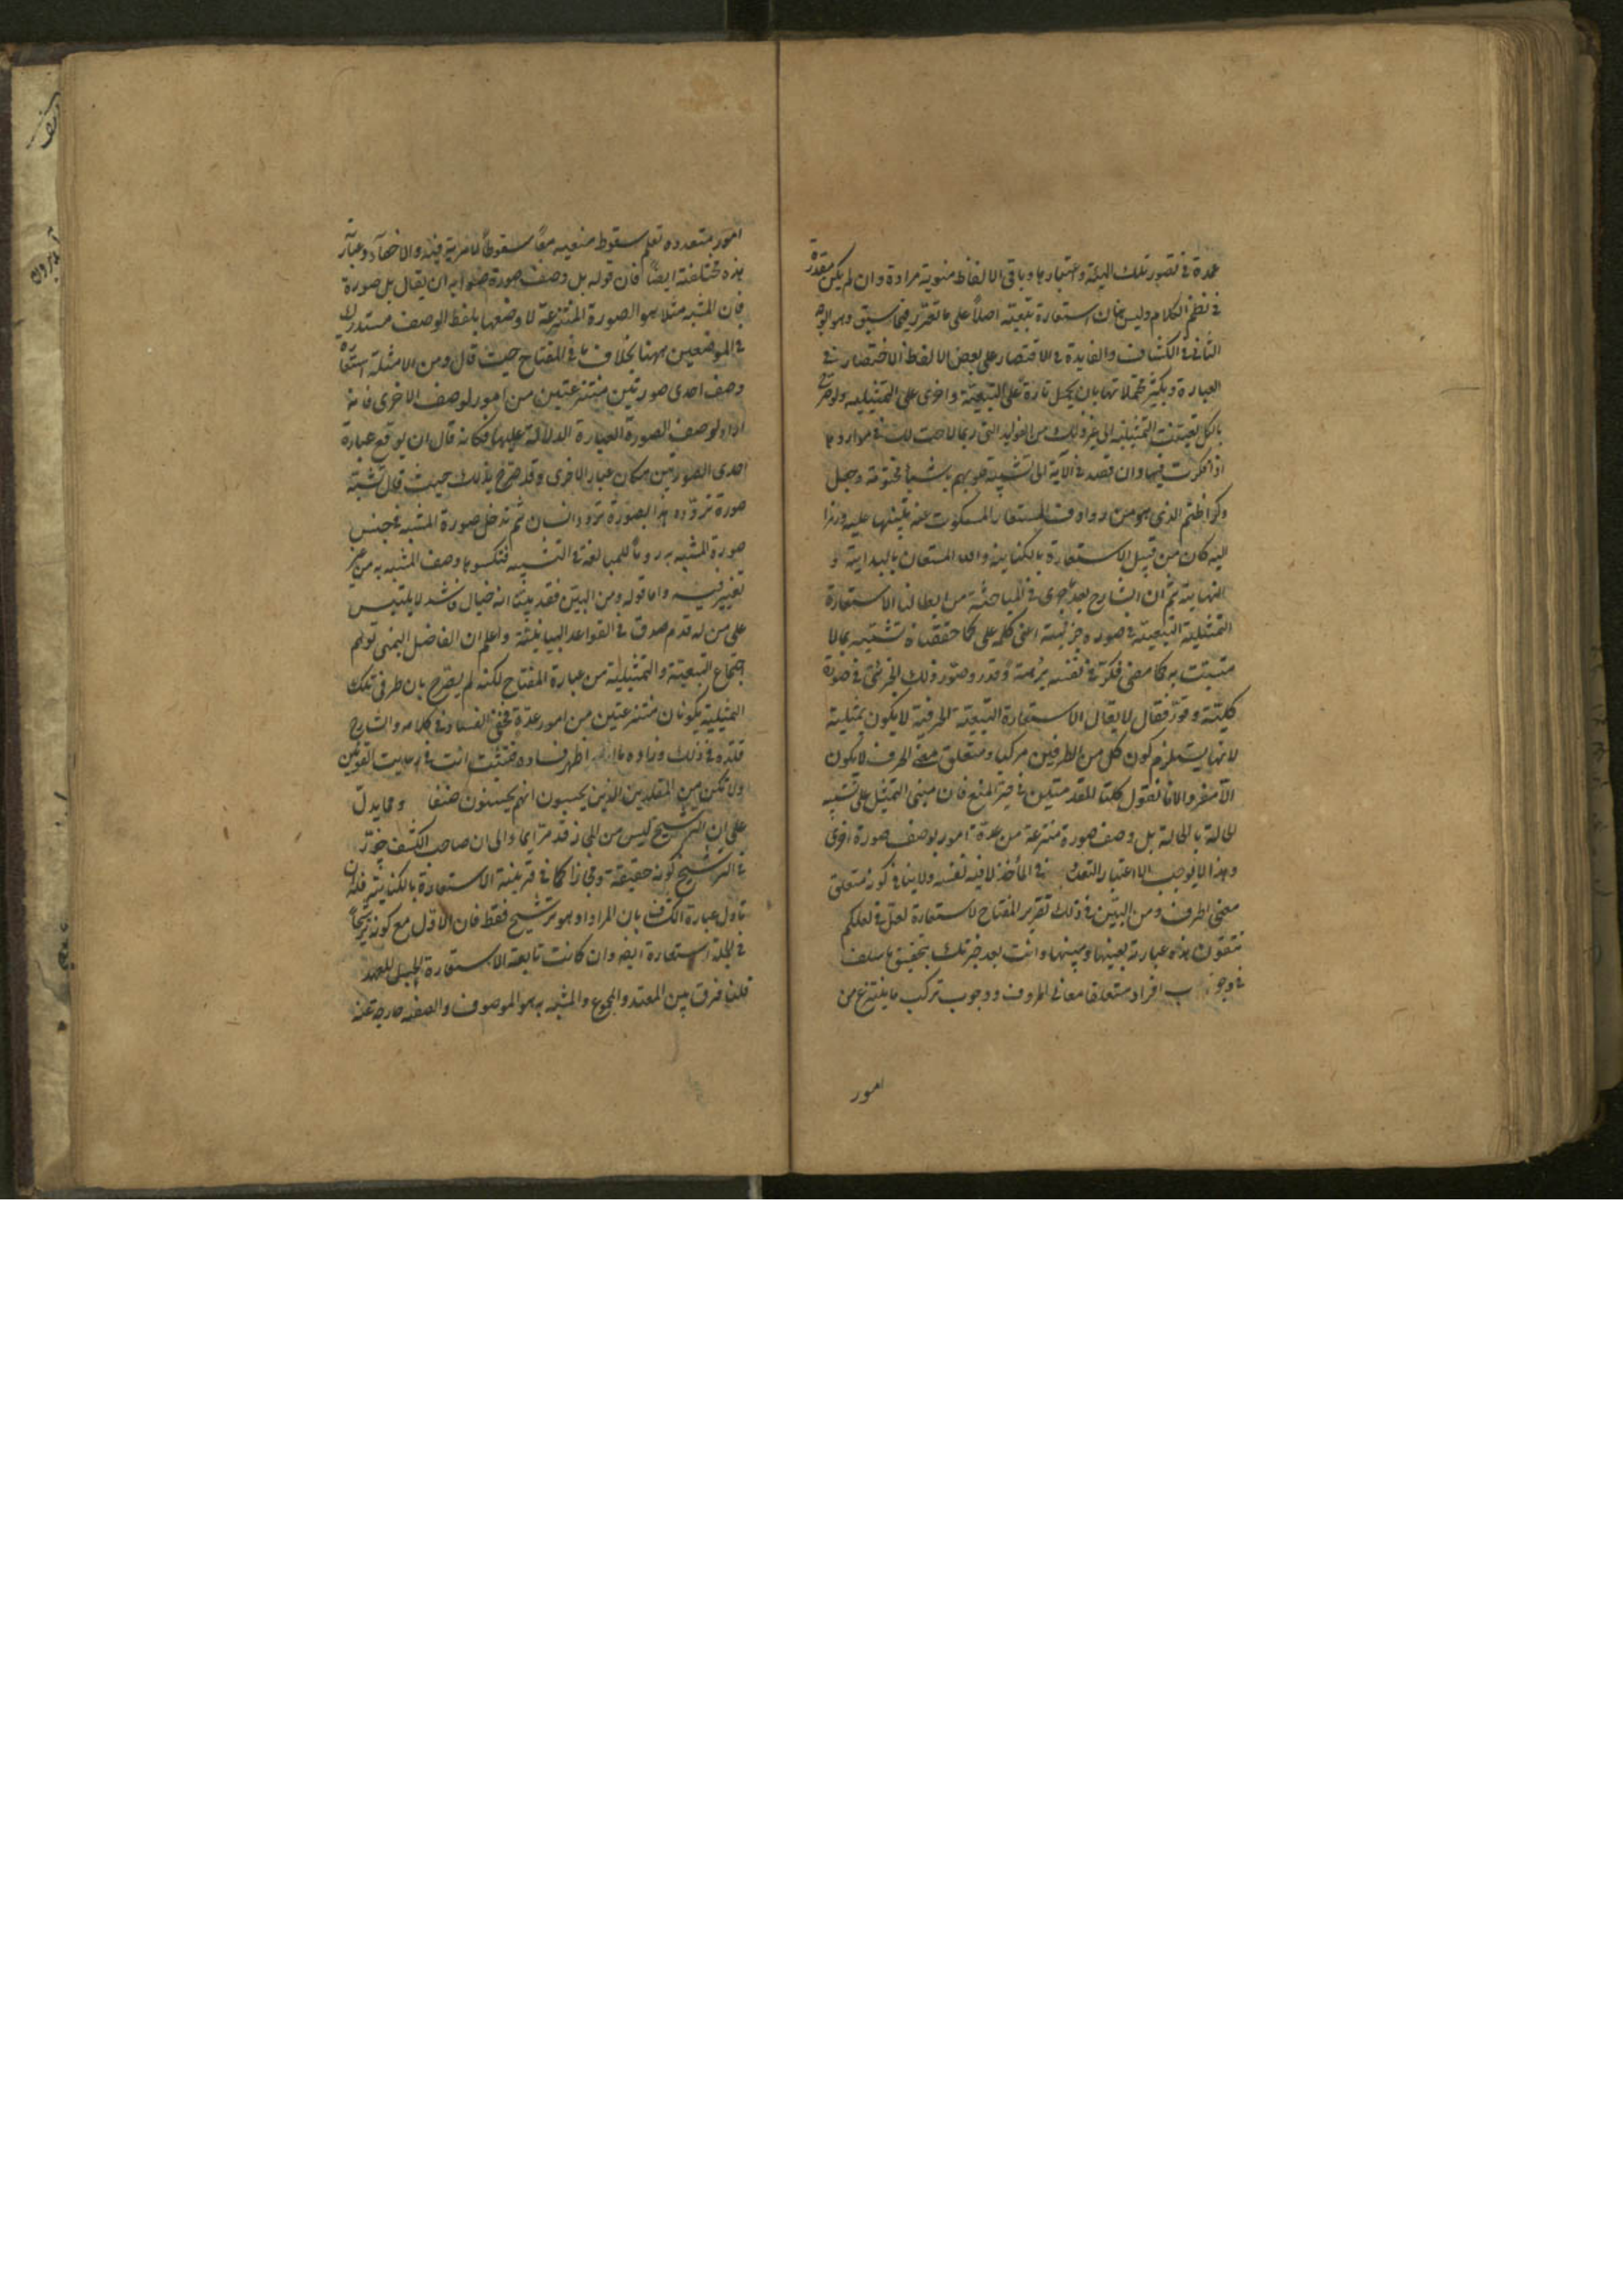 عمدة في تصور تلك الهيئة واعتبارها وباقي الالفاظ منوية مرادة وان لم يكن مقدرة
في نظم الكلام وليس هناك استعارة تبعية اصلاً على ما تقرر فيما سبق وهو الوجه
الثاني في الكشاف والفايدة في الاقتصار على بعض الالفاظ الاختصار في
العبارة وتكثير محتملاتها بان يحمل تارة على التبعية واخرى على التمثيلية ولو صرح
بالكل تعينت التمثيلية الى غير ذلك من الفوايد التي ربما لاحت لك في موارد ها
اذا فكرت فيها وان قصد في الآية الى تشبيه قلوبهم باشياء مختومة وجعل
ذكر الختم الذي هو من روادف المستعار المسكوت عنه تنبيها عليه ورمزا
اليه كان من قبيل الاستعارة بالكناية والله المستعان بالبداية و
النهاية ثم ان الشارح بعد جرى في المباحثة من ابطالنا الاستعارة
التمثيلية التبعية في صورة جزئية اعني كلمة على كما حققناه تشبيه بما لا
متبت به كما مضى فكر في نفسه برهة وقدر وصور ذلك الجزئي في صورة
كلية وقرر فقال لا يقال الاستعارة التبعية الحرفية لا يكون تمثيلية
لانها يستلزم كون كل من الطرفين مركبا ومتعلق معنى الحرف لا يكون
الا مفردا لانا نقول كلتا المقدمتين في حيز المنع فان مبنى التمثيل على تشبيه
الحالة بالحالة بل وصف صورة منتزعة من عدة امور بوصف صورة اخرى
وهذا لا يوجب الا اعتبار التعدد في المأخذ لا فيه نفسه ولا ينافي كونه متعلق
معنى الحرف ومن البين في ذلك تقرير المفتاح لاستعارة لعل في لعلكم
تتقون هذه عبارته بعينها ومينها وانت بعد خبرتك بتحقيق ما سلف
افراد متعلقا معاني الحروف ووجوب تركب ما ينتزع من
امور
امور متعددة تعلم سقوط منعيه معًا سقوطًا لا مرية فيه والاخفاء وعبارة
هذه مختلفة ايضاً فان قوله بل وصف صورة صوابه ان يقال بل صورة
فان المشبه مثلا هو الصورة المنتزعة لا وصفها بلفظ الوصف مستدرك
في الموضعين ههنا بخلاف ما في المفتاح حيث قال ومن الامثلة استعارة
وصف احدى صورتين منتزعتين من امور لوصف الاخرى فانه
اراد بوصف الصورة العبارة الدلالة عليها فكانه قال ان يوقع عبارة
احدى الصورتين مكان عبارة الاخرى وقد صرح بذلك حيث قال تشبه
صورة تردده هذا بصورة تردد انسان ثم تدخل صورة المشبه في جنس
صورة المشبه به روماً للمبالغة في التشبيه فتكسوها وصف المشبه به من غير
تغيير فيه واما قوله ومن البين فقد بينا انه خيال فاسد لا يلتبس
على من له قدم صدق في القواعد البيانية واعلم ان الفاضل اليمني توهم
اجتماع التبعية والتمثيلية من عبارة المفتاح لكنه لم يصرح بان طرفي تلك
التمثيلية يكونان منتزعتين من امور عدة فخفي الفساد في كلامه والشارح
قلده في ذلك وزاده ما اظهر فساده فتثبت انت في رعايت القوانين
ولا تكن من المقلدين الذين يحسبون انهم يحسنون صنعًا ومما يدل
على ان الترشيح ليس من المجاز قد مر ايماء الى ان صاحب الكشف جوز
في الترشيح كونه حقيقة ومجازا كما في قرينة الاستعارة بالكناية فله ان
تأول عبارة الكشاف بان المراد او هو ترشيح فقط فان الاول مع كونه ترشيحًا
في الجملة استعارة ايضا وان كانت تابعة لاستعارة الحبل للعهد
قلنا فرق بين المقيد والمجموع والمشبه به هو الموصوف والصفة خارجة عنه